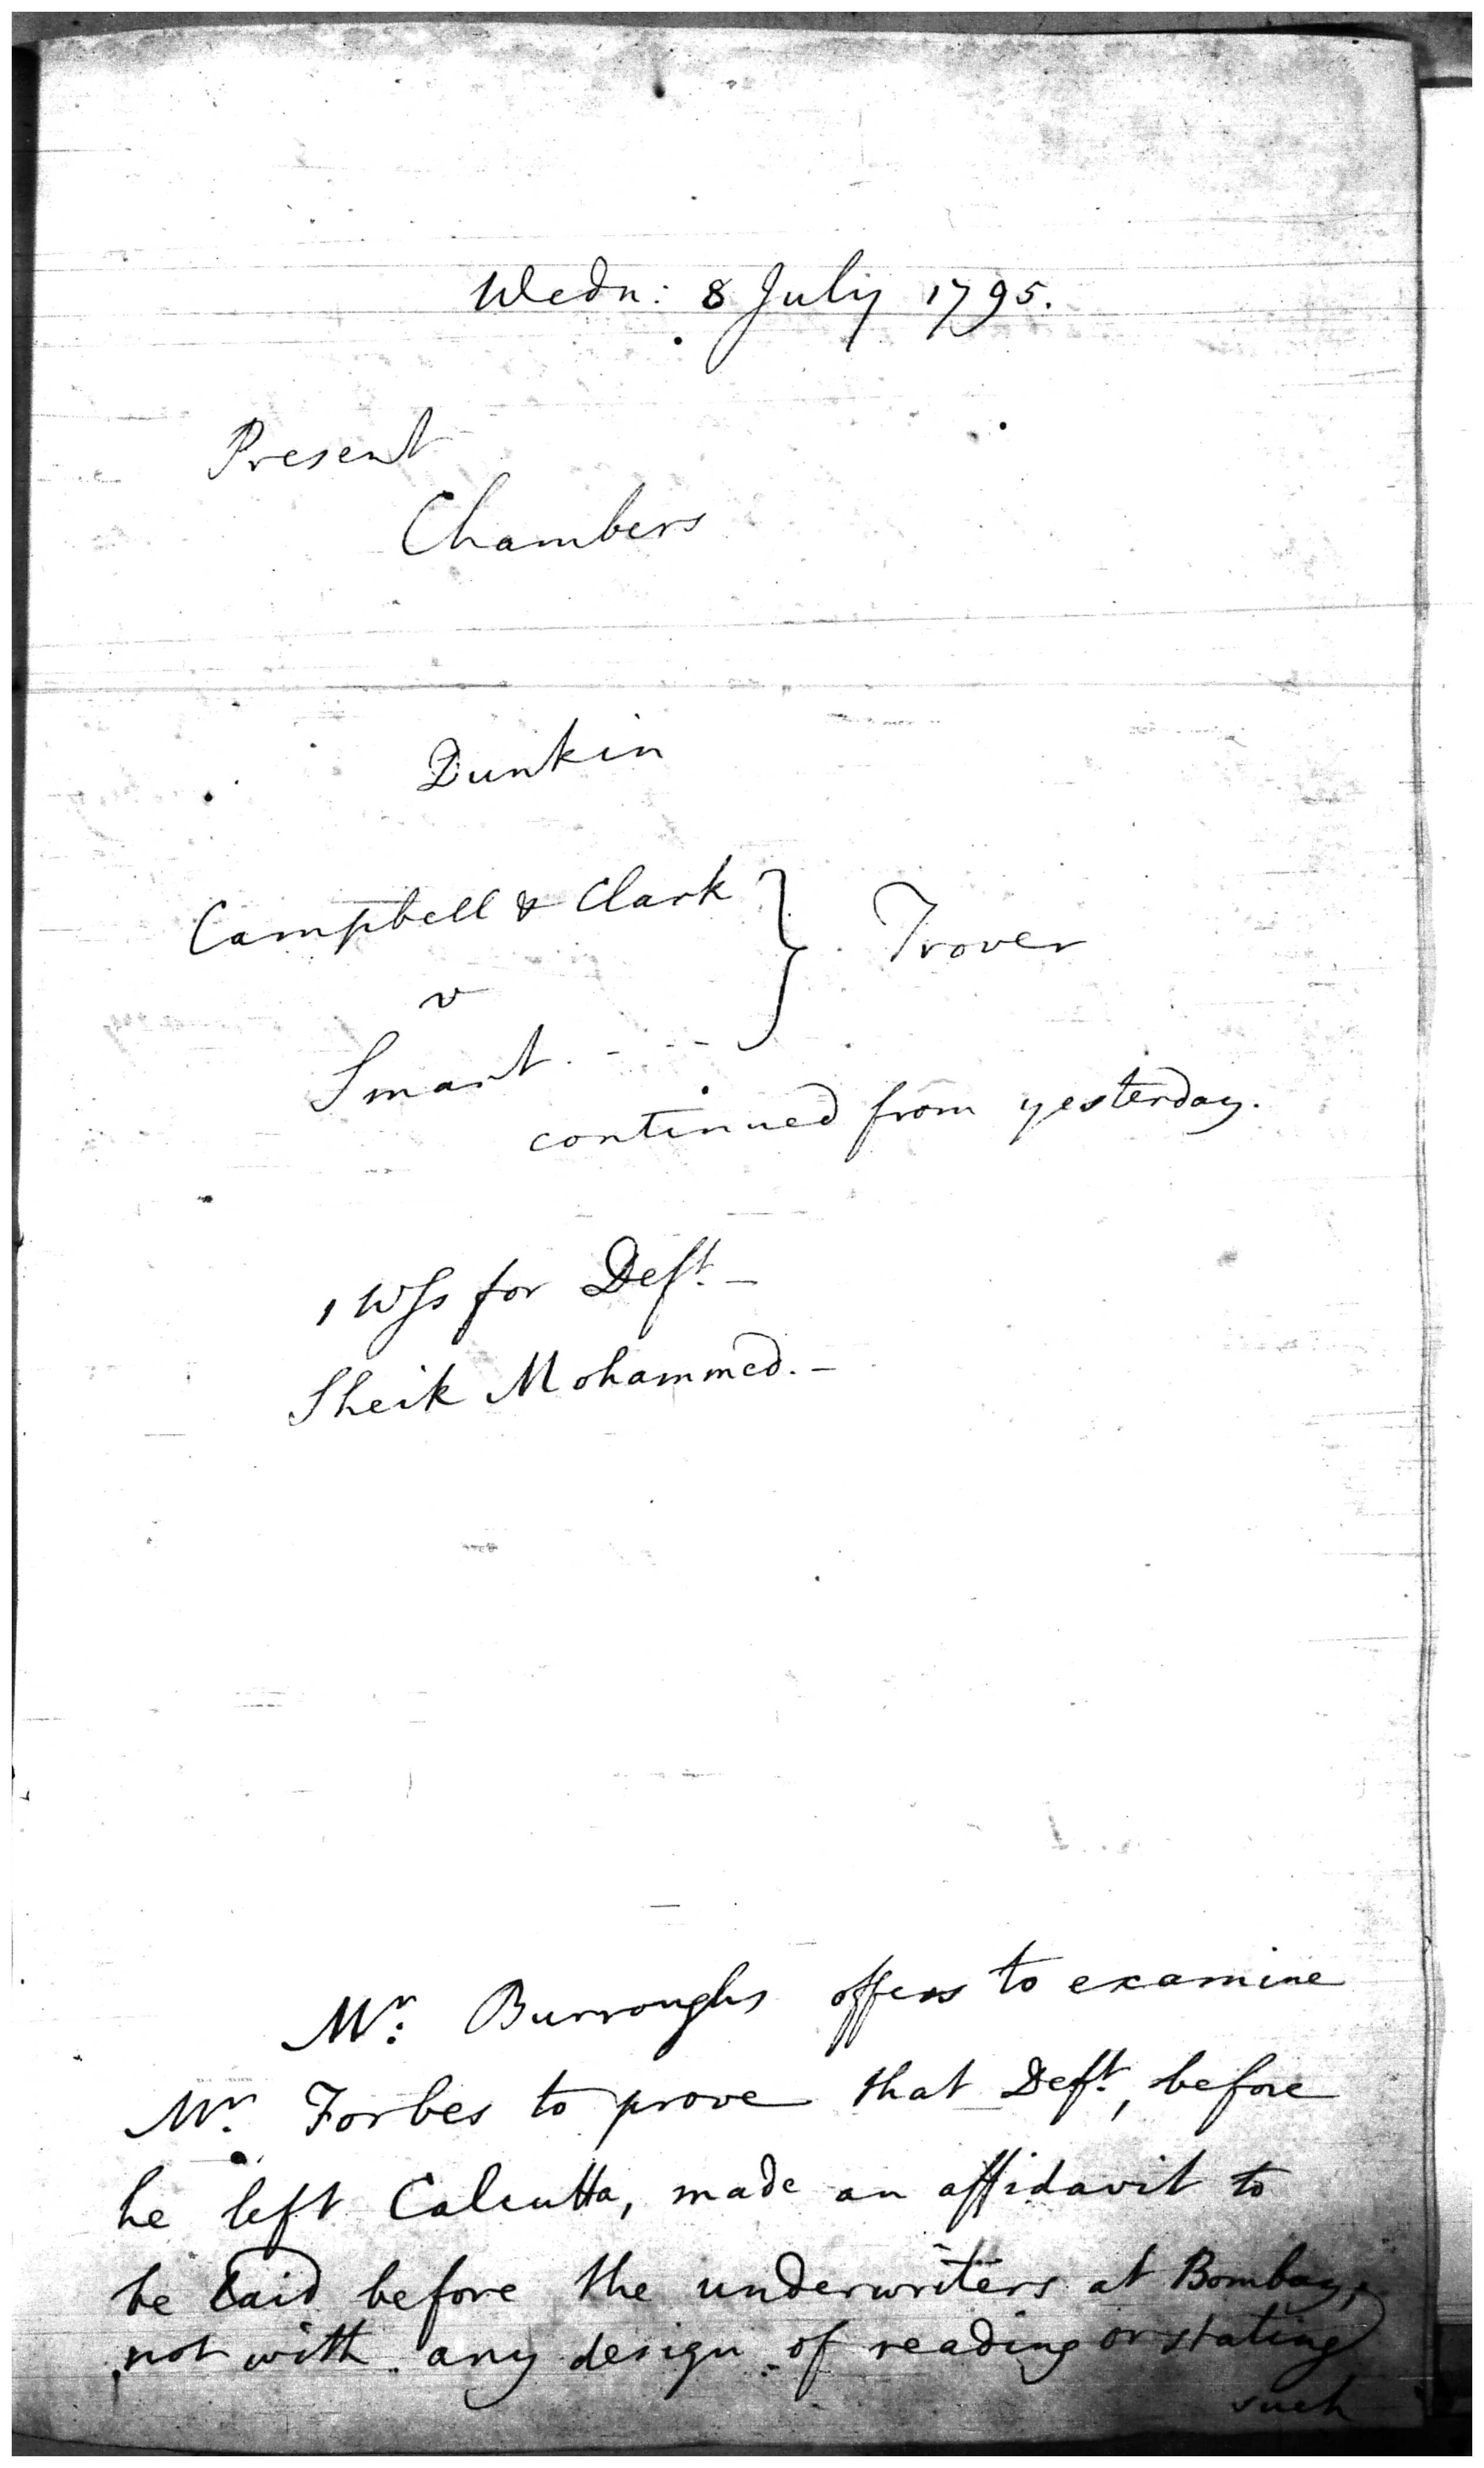 Wedn: 8 July 1795.
Present
Chambers
Dunkin
Campbell & Clark } Trover
v
Smart. - - -
continued from yesterday.
1 Wss for Deft. -
Sheik Mohammed. -
Mr: Burroughs offers to examine
Mr. Forbes to prove that Deft, before
he left Calcutta, made an affidavit to
be laid before the underwriters at Bombay,
not with any design of reading or stating
such